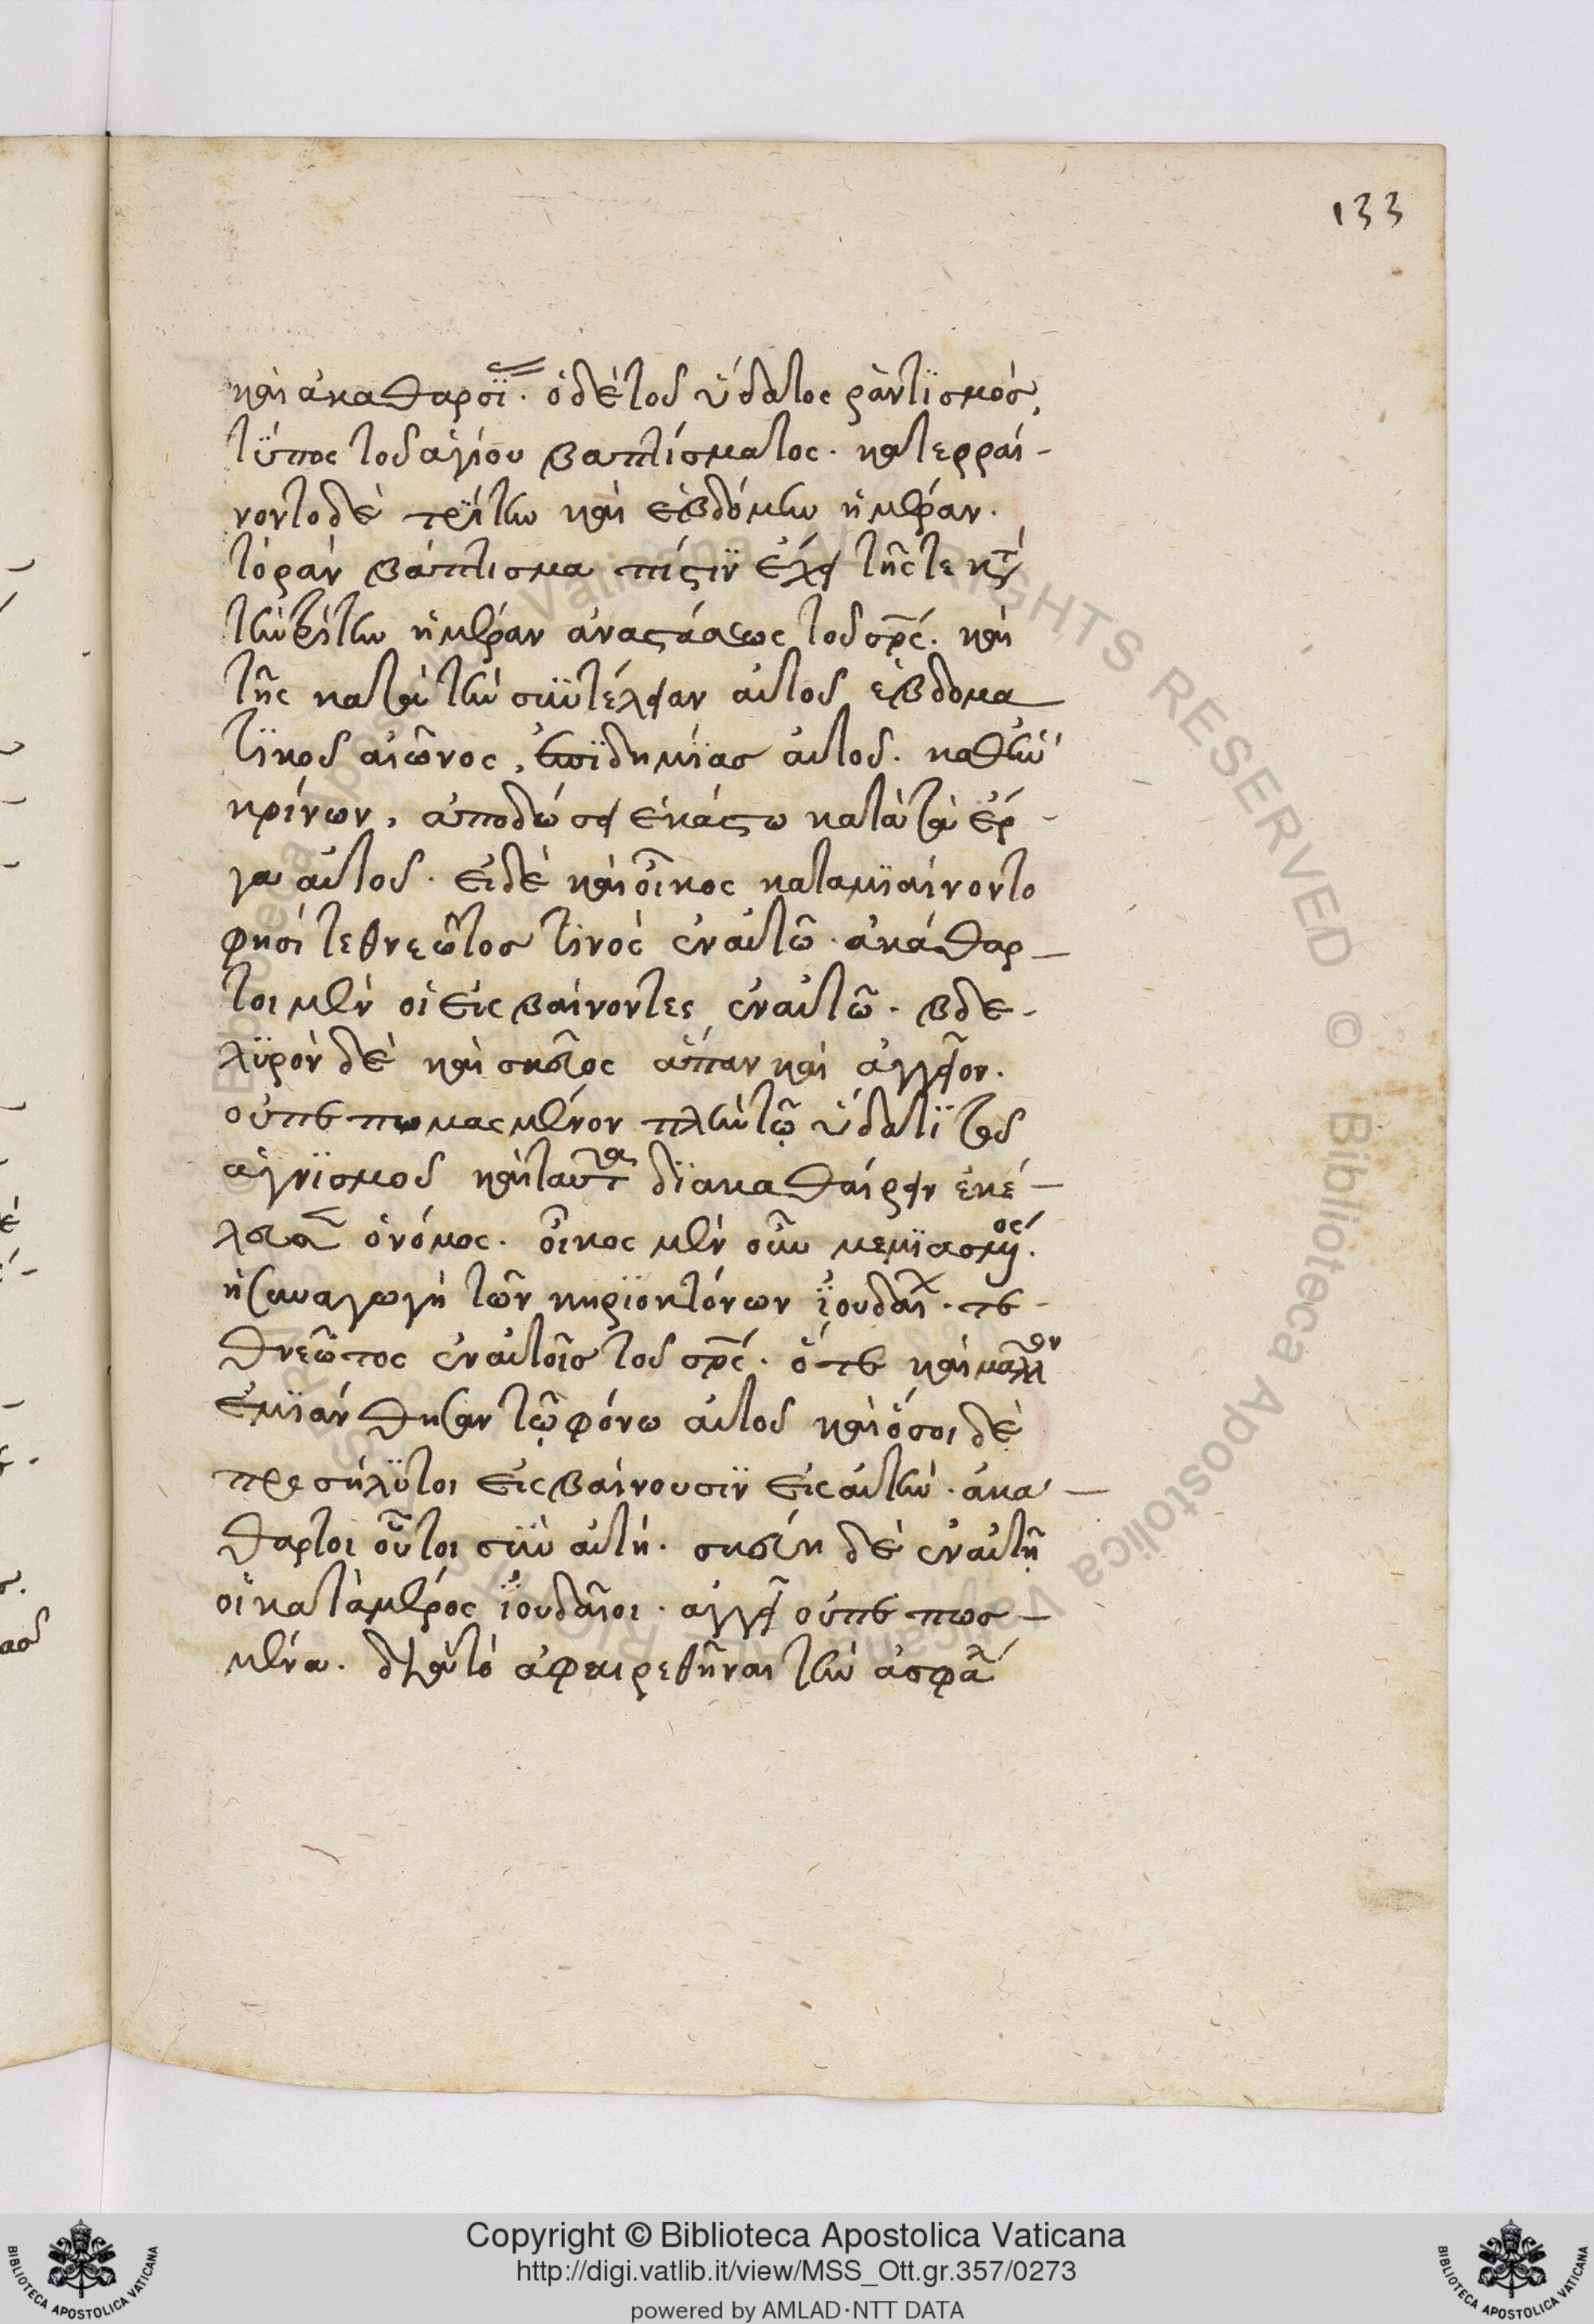 133
καὶ ἀκαθαρσΐ. ὁ δὲ τοῦ ὕδατος ῥαντϊσμὸσ,
τΰπος τοῦ ἁγίου βαπτίσματος. κατερραί-
νοντο δὲ τρίτην καὶ ἑβδόμην ἡμέραν.
τὸ γὰρ βάπτισμα πίστιν ἔχει τῆς τε κτ̀
τὴν τρίτην ἡμέραν ἀναστάσεως τοῦ σρ̅ς. καὶ
τῆς κατὰ τὴν συντέλειαν αὐτοῦ ἑβδομα
τϊκοῦ αἰῶνος, ἐπϊδημΐασ αὐτοῦ. καθ' ἣν
κρίνων, ἀποδώσει ἑκάστω κατὰ τὰ ἔρ-
γα αὐτοῦ. εἰ δὲ καὶ οἶκος καταμϊαίνοντο
φησὶ τεθνεῶτοσ τϊνὸς ἐν αὐτῶ. ἀκάθαρ-
τοι μὲν οἱ εἰσβαίνοντες ἐν αὐτῶ. βδε-
λϋρὸν δὲ καὶ σκεῦος ἅπαν καὶ ἀγγεῖον.
οὐ πεπωμασμένον πλὴν τῷ ὕδατϊ τοῦ
ἁγνϊσμοῦ καὶ ταῦτα δϊακαθαίρειν ἐκέ-
λευσεν ὁ νόμος. οἶκος μὲν οὖν μεμϊασμένος.
ἡ συναγωγὴ τῶν κυρϊοκτόνων ϊουδαι. τε-
θνεῶτος ἐν αὐτοῖσ τοῦ σρ̅ς. ὅτε καὶ μᾶλλον
ἐμϊάνθησαν τῷ φόνω αὐτοῦ καὶ ὅσοι δὲ
προσήλϋτοι εἰσβαίνουσϊν εἰς αὐτὴν. ἀκα-
θαρτοι οὗτοι σὺν αὐτή. σκεύη δὲ ἐν αὐτῇ
οἱ κατὰ μέρος ϊουδαῖοι. ἀγγεῖ οὐ πεπωσ-
μένα. διὰ τὸ ἀφαιρεθῆναι τὴν ἀσφά
Copyright © Biblioteca Apostolica Vaticana
http://digi.vatlib.it/view/MSS_Ott.gr.357/0273
powered by AMLAD·NTT DATA